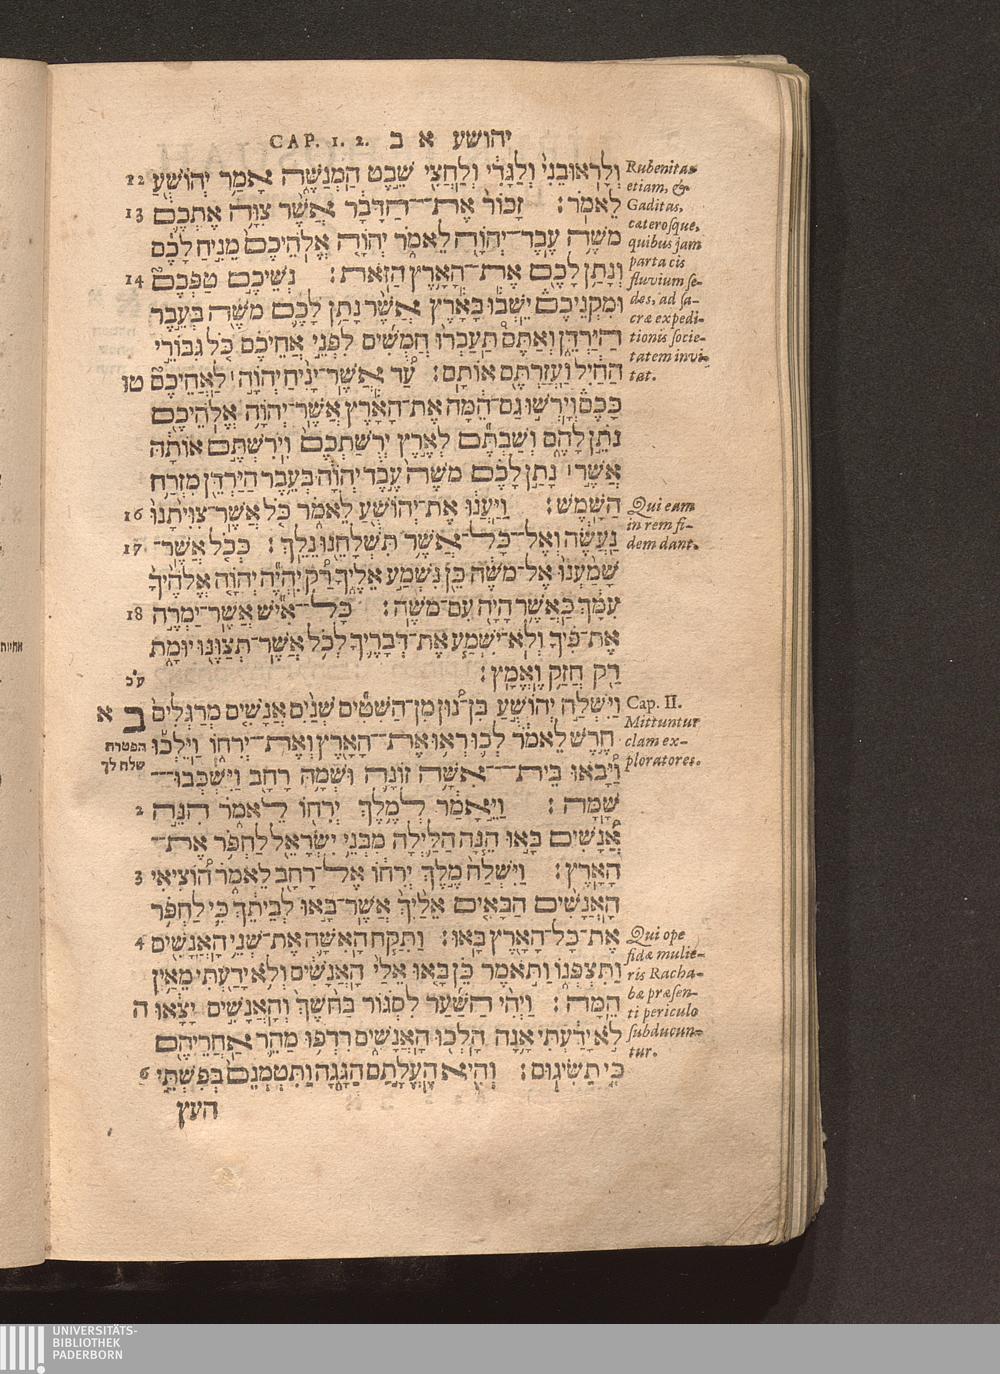 יהושע א ב CAP. 1. 2.
12 וְלָרֽאוּבֵנִי֙ וְלַגָּדִ֔י וְלַחֲצִ֖י שֵׁ֣בֶט הַֽמְנַשֶּׁ֑ה אָמַ֥ר יְהוֹשֻׁ֖עַ
13 לֵאמֹֽר׃ זָכוֹר֙ אֶת־הַדָּבָ֔ר אֲשֶׁ֨ר צִוָּ֥ה אֶתְכֶ֛ם
מֹשֶׁ֥ה עֶֽבֶד־יְהוָֹ֖ה לֵאמֹ֑ר יְהוָֹ֤ה אֱלֹֽהֵיכֶם֙ מֵנִ֣יחַ לָכֶ֔ם
14 וְנָתַ֥ן לָכֶ֖ם אֶת־הָאָ֥רֶץ הַזֹּֽאת׃ נְשֵׁיכֶ֣ם טַפְּכֶם֮
וּמִקְנֵיכֶם֒ יֵשְׁב֕וּ בָּאָ֕רֶץ אֲשֶׁ֨ר נָתַ֥ן לָכֶ֛ם מֹשֶׁ֖ה בְּעֵ֣בֶר
הַיַּרְדֵּ֑ן וְאַתֶּם֩ תַּעַבְר֨וּ חֲמֻשִׁ֜ים לִפְנֵ֣י אֲחֵיכֶ֗ם כֹּ֚ל גִּבּוֹרֵ֣י
הַחַ֔יִל וַעֲזַרְתֶּ֖ם אוֹתָֽם׃ עַ֠ד אֲשֶׁר־יָנִ֨יחַ יְהוָֹ֥ה ׀ לַֽאֲחֵיכֶם֮ טו
כָּכֶם֒ וְיָרְשׁ֣וּ גַם־הֵ֔מָּה אֶת־הָאָ֕רֶץ אֲשֶׁר־יְהוָֹ֥ה אֱלֹֽהֵיכֶ֖ם
נֹתֵ֣ן לָהֶ֑ם וְשַׁבְתֶּ֞ם לְאֶ֤רֶץ יְרֻשַּׁתְכֶם֙ וִֽירִשְׁתֶּ֣ם אוֹתָ֔הּ
אֲשֶׁ֣ר ׀ נָתַ֣ן לָכֶ֗ם מֹשֶׁה֙ עֶ֣בֶד יְהוָֹ֔ה בְּעֵ֥בֶר הַיַּרְדֵּ֖ן מִזְרַ֥ח
16 הַשָּֽׁמֶשׁ׃ וַֽיַּעֲנ֔וּ אֶת־יְהוֹשֻׁ֖עַ לֵאמֹ֑ר כֹּ֤ל אֲשֶׁר־צִוִּיתָ֨נוּ֙
17 נַֽעֲשֶׂ֔ה וְאֶל־כָּל־אֲשֶׁ֥ר תִּשְׁלָחֵ֖נוּ נֵלֵֽךְ׃ כְּכֹ֤ל אֲשֶׁר־
שָׁמַ֨עְנוּ֙ אֶל־מֹשֶׁ֔ה כֵּ֖ן נִשְׁמַ֣ע אֵלֶ֑יךָ רַ֠ק יִֽהְיֶ֞ה יְהוָֹ֤ה אֱלֹהֶ֨יךָ֙
18 עִמָּ֔ךְ כַּאֲשֶׁ֥ר הָיָ֖ה עִם־מֹשֶֽׁה׃ כָּל־אִ֞ישׁ אֲשֶׁר־יַמְרֶ֣ה
אֶת־פִּ֗יךָ וְלֹֽא־יִשְׁמַ֧ע אֶת־דְּבָרֶ֛יךָ לְכֹ֥ל אֲשֶׁר־תְּצַוֶּ֖נּוּ יוּמָ֑ת
רַ֖ק חֲזַ֥ק וֶאֱמָֽץ׃
ב א וַיִּשְׁלַ֣ח יְהוֹשֻֽׁעַ בִּן־נ֠וּן מִֽן־הַשִּׁטִּ֞ים שְׁנַ֨יִם אֲנָשִׁ֤ים מְרַגְּלִים֙
חֶ֣רֶשׁ לֵאמֹ֔ר לְכ֛וּ רְא֥וּ אֶת־הָאָ֖רֶץ וְאֶת־יְרִיח֑וֹ וַיֵּ֨לְכ֜וּ
וַ֠יָּבֹאוּ בֵּית־אִשָּׁ֥ה זוֹנָ֛ה וּשְׁמָ֥הּ רָחָ֖ב וַיִּשְׁכְּבוּ־
2 שָֽׁמָּה׃ וַיֵּ֣אָמַ֔ר לְמֶ֥לֶךְ יְרִיח֖וֹ לֵאמֹ֑ר הִנֵּ֣ה
אֲ֠נָשִׁים בָּ֣אוּ הֵ֧נָּה הַלַּ֛יְלָה מִבְּנֵ֥י יִשְׂרָאֵ֖ל לַחְפֹּ֥ר אֶת־
3 הָאָֽרֶץ׃ וַיִּשְׁלַח֙ מֶ֣לֶךְ יְרִיח֔וֹ אֶל־רָחָ֖ב לֵאמֹ֑ר ה֠וֹצִיאִי
הָאֲנָשִׁ֨ים הַבָּאִ֤ים אֵלַ֨יִךְ֙ אֲשֶׁר־בָּ֣אוּ לְבֵיתֵ֔ךְ כִּ֛י לַחְפֹּ֥ר
4 אֶת־כָּל־הָאָ֖רֶץ בָּֽאוּ׃ וַתִּקַּ֧ח הָֽאִשָּׁ֛ה אֶת־שְׁנֵ֥י הָאֲנָשִׁ֖ים
וַֽתִּצְפְּנ֑וֹ וַתֹּ֣אמֶר כֵּ֗ן בָּ֤אוּ אֵלַי֙ הָֽאֲנָשִׁ֔ים וְלֹ֥א יָדַ֖עְתִּי מֵאַ֥יִן
הֵֽמָּה׃ וַיְהִ֨י הַשַּׁ֜עַר לִסְגּ֗וֹר בַּחֹ֨שֶׁךְ֙ וְהָאֲנָשִׁ֣ים יָצָ֔אוּ ה
לֹ֣א יָדַ֔עְתִּי אָ֥נָה הָלְכ֖וּ הָֽאֲנָשִׁ֑ים רִדְפ֥וּ מַהֵ֛ר אַחֲרֵיהֶ֖ם
6 כִּ֥י תַשִּׂיגֽוּם׃ וְהִ֖יא הֶעֱלָ֣תַם הַגָּ֑גָה וַֽתִּטְמְנֵם֙ בְּפִשְׁתֵּ֣י
העץ
Rubenitas
etiam, &
Gaditas,
cæterosque,
quibus jam
parta cis
fluvium se-
des, ad sa-
cræ expedi-
tionis socie-
tatem invi-
tat.
Qui eam
in rem fi-
dem dant.
Cap. II.
Mittuntur
clam ex-
ploratores.
Qui ope
fidæ mulie-
ris Racha-
bæ præsen-
ti periculo
subducun-
tur.
הפטרת
שלח לך
UNIVERSITÄTS-
BIBLIOTHEK
PADERBORN